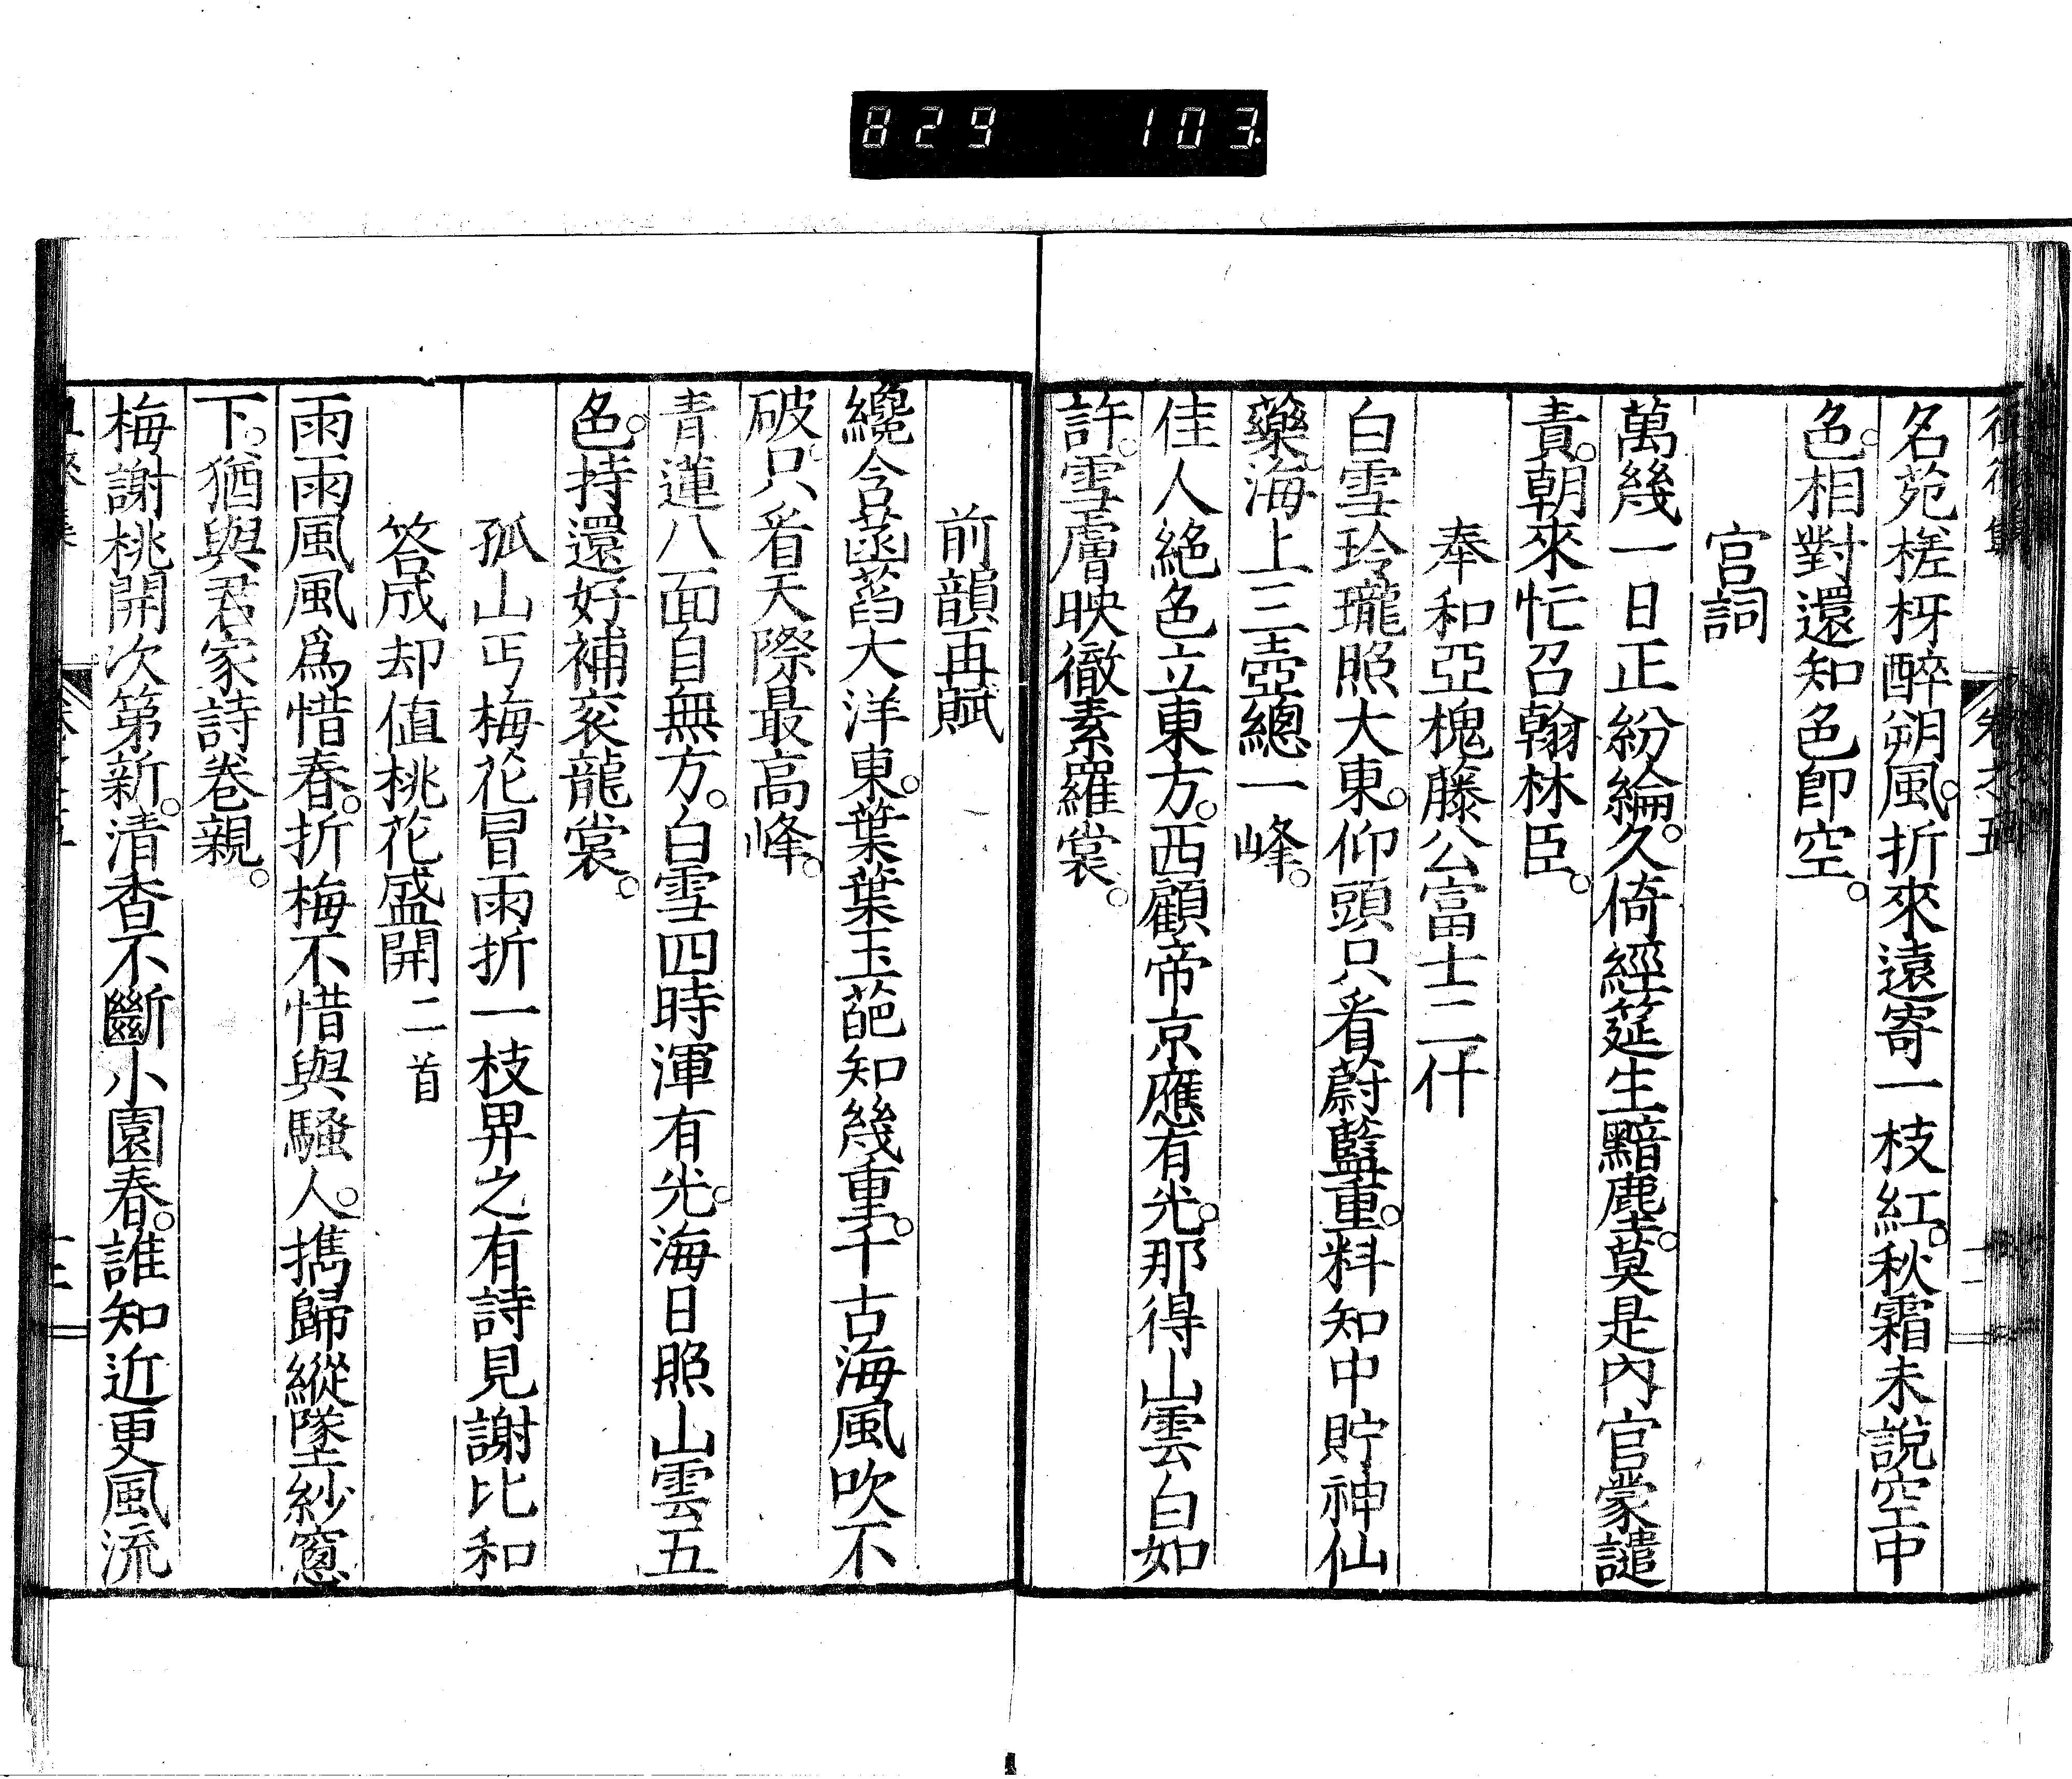 829 103
名苑槎枒醉朔風。折來遠寄一枝紅。秋霜未說空中
色。色相對還知色卽空。
宮詞
萬幾一日正紛綸。久倚經筵生黯塵。莫是內官蒙譴
責。朝來忙召翰林臣。
奉和亞槐藤公富士二什
白雪玲瓏照大東。仰頭只看蔚藍重。料知中貯神仙
藥。海上三壺總一峰。
佳人絕色立東方。西顧帝京應有光。那得山雲白如
許。雪膚映徹素羅裳。
前韻再賦
纔含菡萏大洋東。葉葉玉葩知幾重。千古海風吹不
破。只看天際最高峰。
青蓮八面自無方。白雪四時渾有光。海日照山雲五
色。持還好補袞龍裳。
孤山丐梅花冒雨折一枝畀之有詩見謝比和
答成却值桃花盛開二首
雨雨風風爲惜春。折梅不惜與騷人。攜歸縱墜紗窻
下。猶與君家詩卷親。
梅謝桃開次第新。清香不斷小園春。誰知近更風流